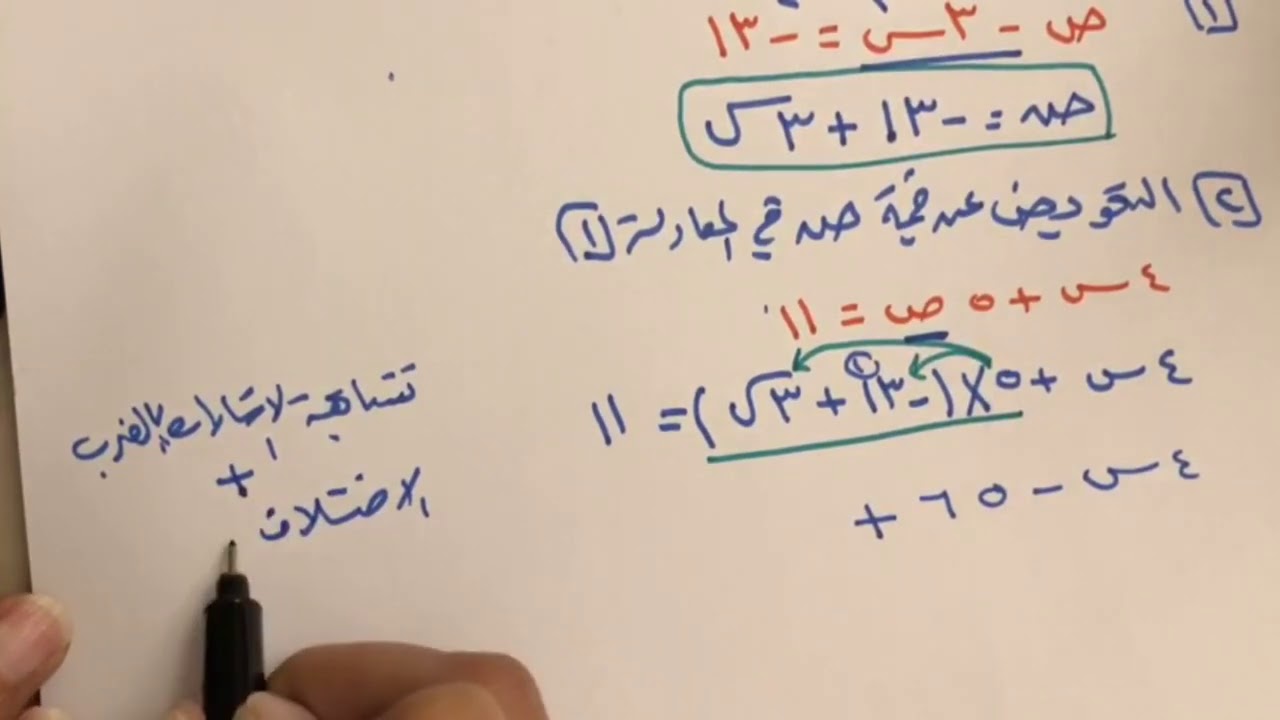 [١]
ص - ٣س = - ١٣
ص = - ١٣ + ٣س
[٢] التعويض عن قيمة ص في المعادلة [١]
٤س + ٥ص = ١١
٤س + ٥ × (- ١٣ + ٣س) = ١١
٤س - ٦٥ +
تشابه الإشارات بالضرب
+
الاختلاف